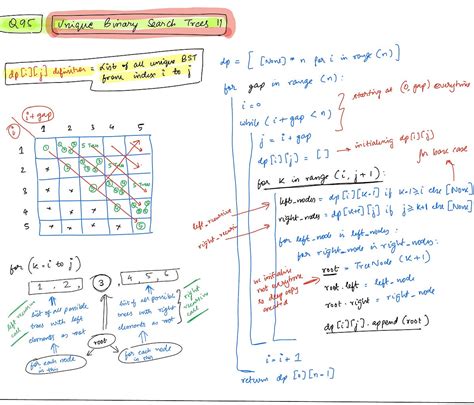 Q95 Unique Binary Search Trees II
dp[i][j] definition = List of all unique BST
from index i to j
i+gap
i
j
1 2 3 4 5
1
2
3
4
5
5 Trees
5 Trees
5 Trees
for (k = i to j)
1, 2, 3, 4, 5, 6
left recursive call
list of all possible trees with left elements as root
root
list of all possible trees with right elements as root
right recursive call
for each node in this
for each node in this
dp = [ [None] * n for i in range (n)]
for gap in range (n):
i = 0
while (i + gap < n)
starting at (0, gap) everytime
j = i + gap
dp[i][j] = [ ] → initializing dp[i][j]
for base case
for k in range (i, j+1):
left_nodes = dp[i][k-1] if k-1 ≥ i else [None]
right_nodes = dp[k+1][j] if j ≥ k+1 else [None]
left_recursive
right_recursive
for left_node in left_nodes:
for right_node in right_nodes:
root = TreeNode (k+1)
root.left = left_node
root.right = right_node
dp[i][j].append (root)
we initialise root everytime so deep copy created
i = i + 1
return dp [0][n-1]